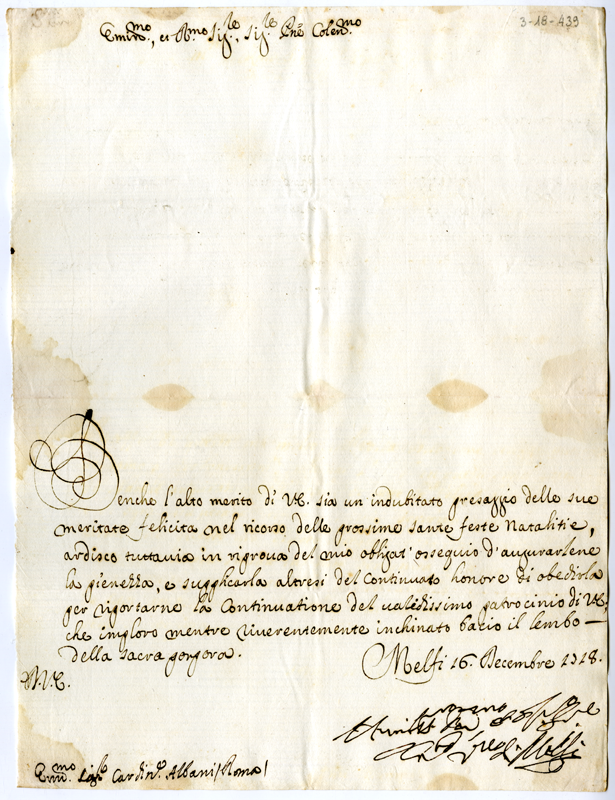 3-18-439
Emin.mo, et R.mo Sig.re, Sig.re Pne Colen.mo
Benche l'alto merito di V.E. sia un indubitato presaggio delle sue
meritate felicita nel ricorso delle prossime sante feste Natalitie,
ardisco tuttavia in riprova del mio obligat' ossequio d'augurarlene
la pienezza, e supplicarla altresi del Continuato honore di obedirla
per riportarne la Continuatione del validissimo patrocinio di V.E,
che imploro mentre riverentemente inchinato bacio il lembo
della sacra porpora.
Melfi 16. Decembre 1718.
V.E.
di Melfi
Em.mo Sig.re Cardin.e Albani / Roma /